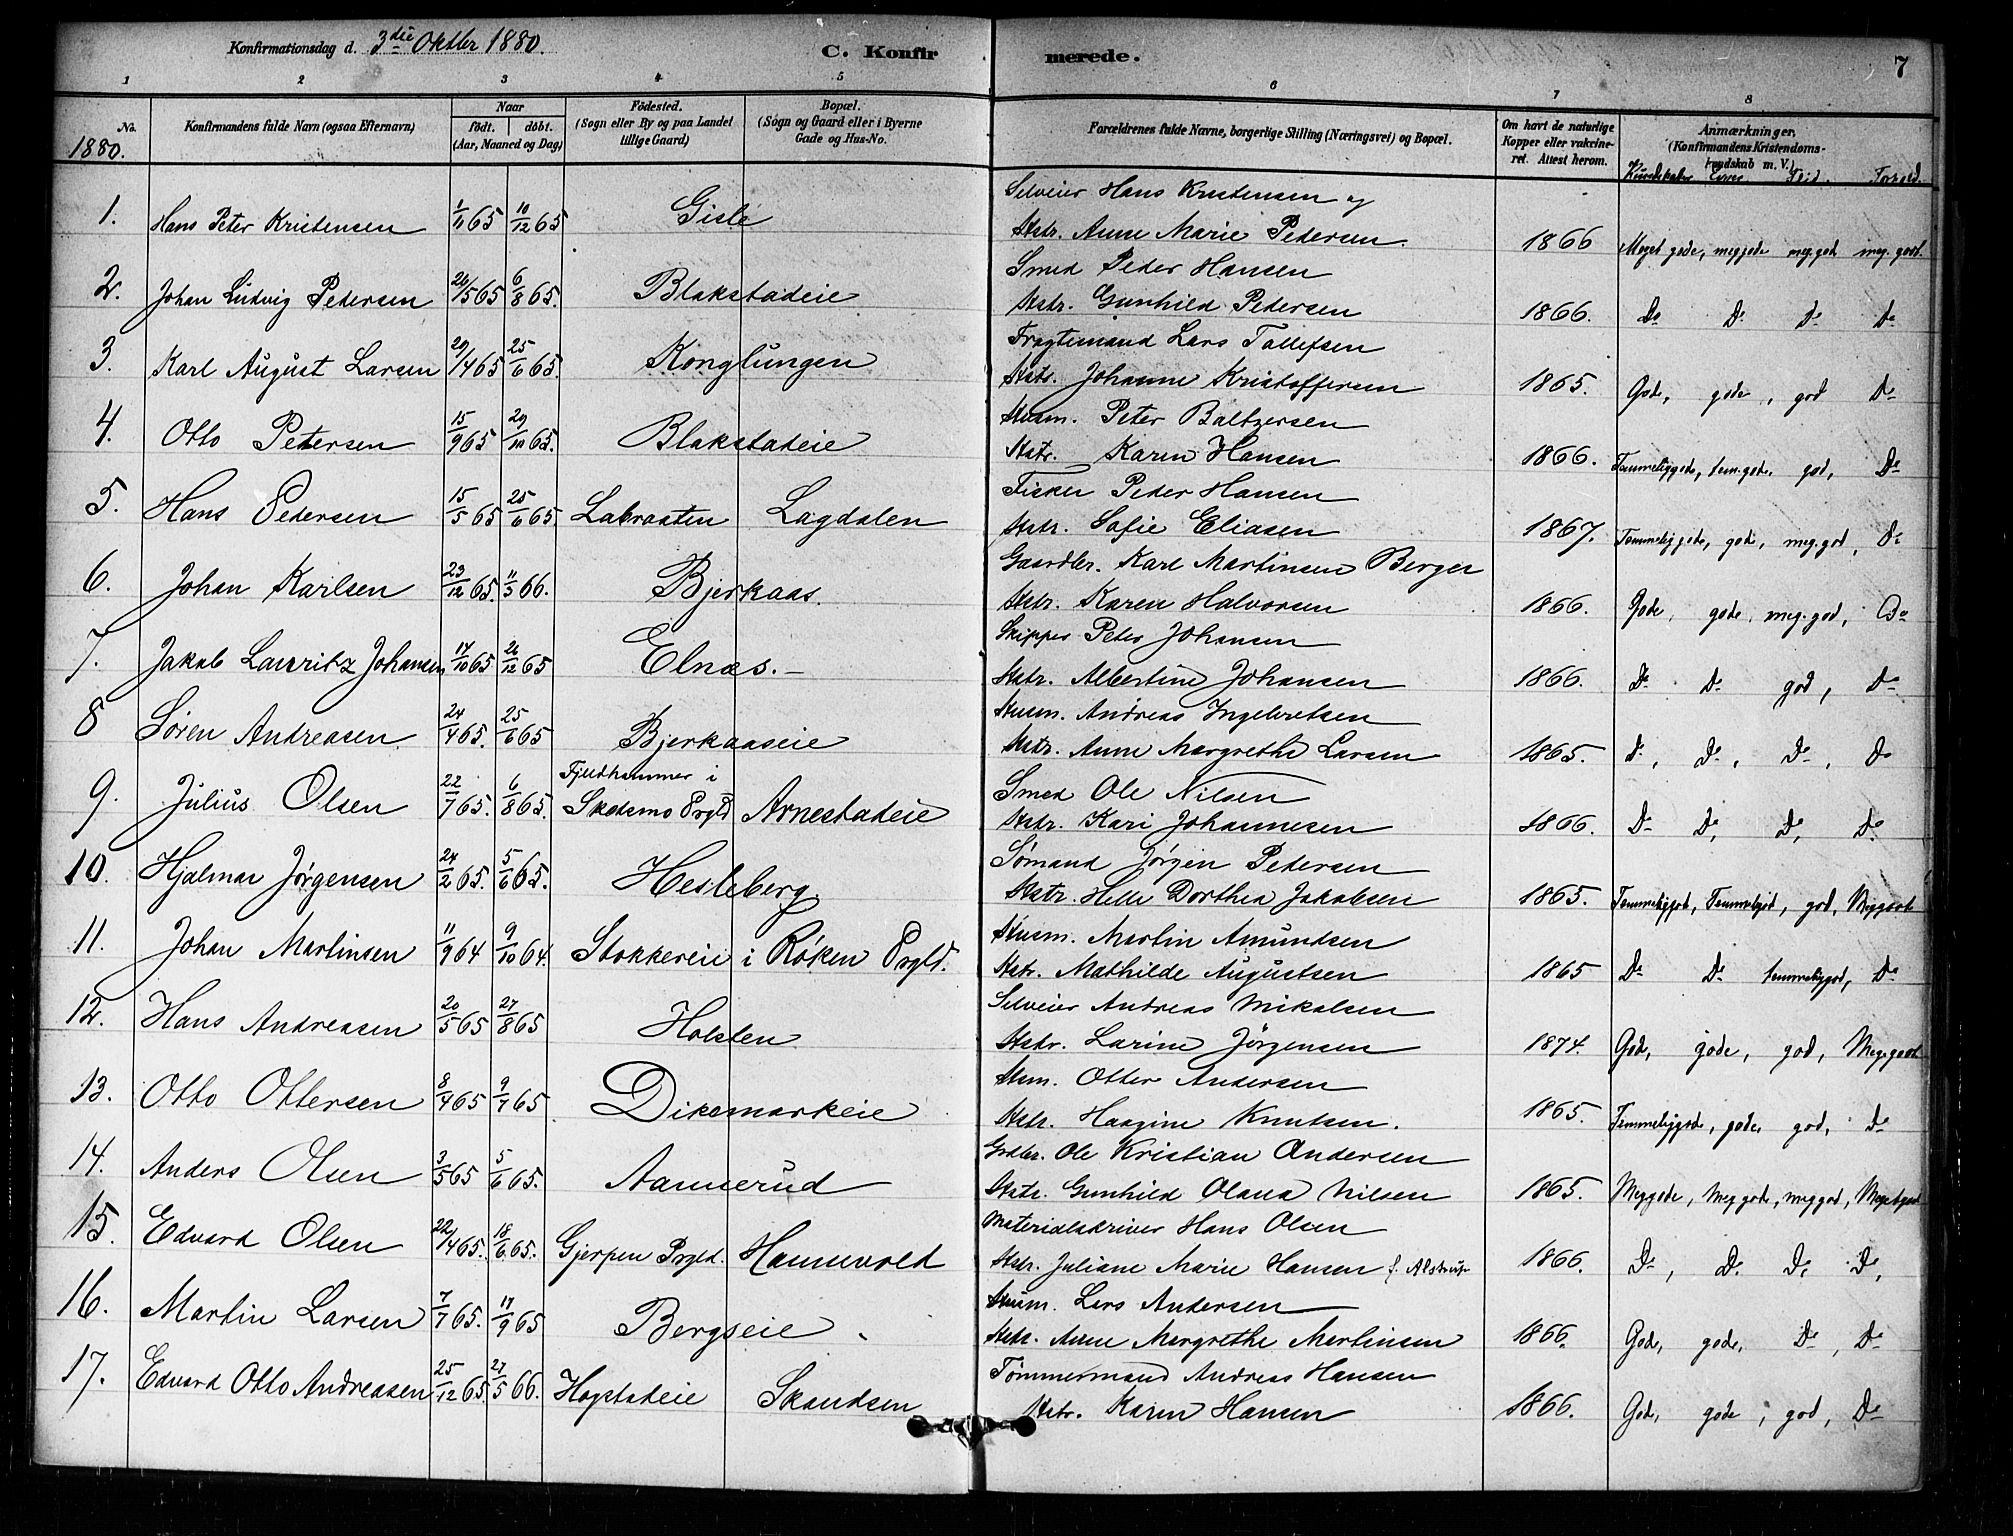 Konfirmationsdag d. 3die Oktbr 1880.
C. Konfirmerede.
7
1 2 3 4 5 6 7 8
No. Konfirmandens fulde Navn (ogsaa Efternavn) Naar født. døbt. (Aar, Maaned og Dag) Fødested. (Sogn eller By og paa Landet tillige Gaard) Bopæl. (Sogn og Gaard eller i Byerne Gade og Hus-No. Forældrenes fulde Navne, borgerlige Stilling (Næringsvei) og Bopæl. Om havt de naturlige Kopper eller vakcineret. Attest herom. Anmærkninger, (Konfirmandens Kristendomskundskab m. V.)
1880. Kundskaber Evner Flid. Forhold.
1. Hans Peter Kristensen 1/11 65 10/12 65 Gisle Selveier Hans Kristensen og
Hstr. Anne Marie Pedersen 1866 Meget gode, meg gode meg. god meg. godt.
2. Johan Ludvig Pedersen 26/5 65 6/8 65. Blakstadeie Smed Peder Hansen
Hstr. Gunhild Pedersen 1866. Do Do Do Do
3. Karl August Larsen 29/4 65 25/6 65. Konglungen Fragtemand Lars Tollefsen
Hstr. Johanne Kristoffersen 1865. Gode, gode, god Do
4. Otto Petersen 15/9 65 29/10 65. Blakstadeie Husm. Peter Baltzersen
Hstr. Karen Hansen 1866. Temmeliggode, tem. gode. god, Do
5. Hans Pedersen 15/5 65 25/6 65. Labraaten Lagdalen Fisker Peder Hansen
Hstr. Sofie Eliasen 1867. Temmeliggode, gode, meg. god, Do
6. Johan Karlsen 23/12 65. 11/3 66. Bjerkaas. Gaardbr. Karl Martinsen Berger
Hstr. Karen Halvorsen 1866. Gode, gode, meg. god, Do
7. Jakob Lauritz Johansen 14/10 65 26/12 65 Elnæs. Skipper Peter Johansen
Hstr. Albertine Johansen 1866. Do Do god, Do
8 Søren Andreasen 24/4 65. 25/6 65 Bjerkaaseie Husm. Andreas Ingebretsen
Hstr. Anne Margrethe Larsen 1865. Do, Do, Do, Do
9. Julius Olsen 22/7 65. 6/8 65. Fjeldhammer i Skedsmo Prgld Arnestadeie Smed Ole Nilsen
Hstr. Kari Johannesen 1866. Do Do, Do, Do
10. Hjalmar Jørgensen 24/2 65. 5/6 65. Hesleberg Sømand Jørgen Pedersen
Hstr. Helle Dorthea Jakobsen 1865. Temmeliggod, Temmeligod, god, Meg godt
11. Johan Martinsen 11/9 64 9/10 64. Stokkereie i Røken Prgld. Husm. Martin Amundsen
Hstr. Mathilde Augustsen 1865 Do Do temmeliggod, Do
12. Hans Andreasen 20/5 65 27/8 65 Holsten Selveier Andreas Mikalsen
Hstr. Larine Jørgensen 1874. Gode, gode, god, Meg. godt
13. Otto Ottersen 8/4 65 9/7 65 Dikemarkeie Hsm. Otter Andersen
Hstr. Haagine Knutsen. 1865. Temmeliggode, gode, god, do
14. Anders Olsen 3/5 65 5/6 65. Aannerud Grdbr. Ole Kristian Andersen
Hstr. Gunhild Olava Nilsen 1865. Meg gode, meg gode, meg god, Meget godt
15. Edvard Olsen 22/4 65. 18/6 65. Gjerpen Prgld. Hannevold Materialskriver Hans Olsen
Hstr. Juliane Marie Hansen f. Alstrup 1866. Do, Do. Do, Do,
16. Martin Larsen 7/7 65. 17/9 65 Bergseie Husm. Lars Andersen
Hstr. Anne Margrethe Martinsen 1866. Gode, gode, Do, Do
17. Edvard Otto Andreasen 25/12 65 27/5 66. Hogstadeie Skandsen Tømmermand Andreas Hansen
Hstr. Karen Hansen 1866. Gode, gode, god, Do